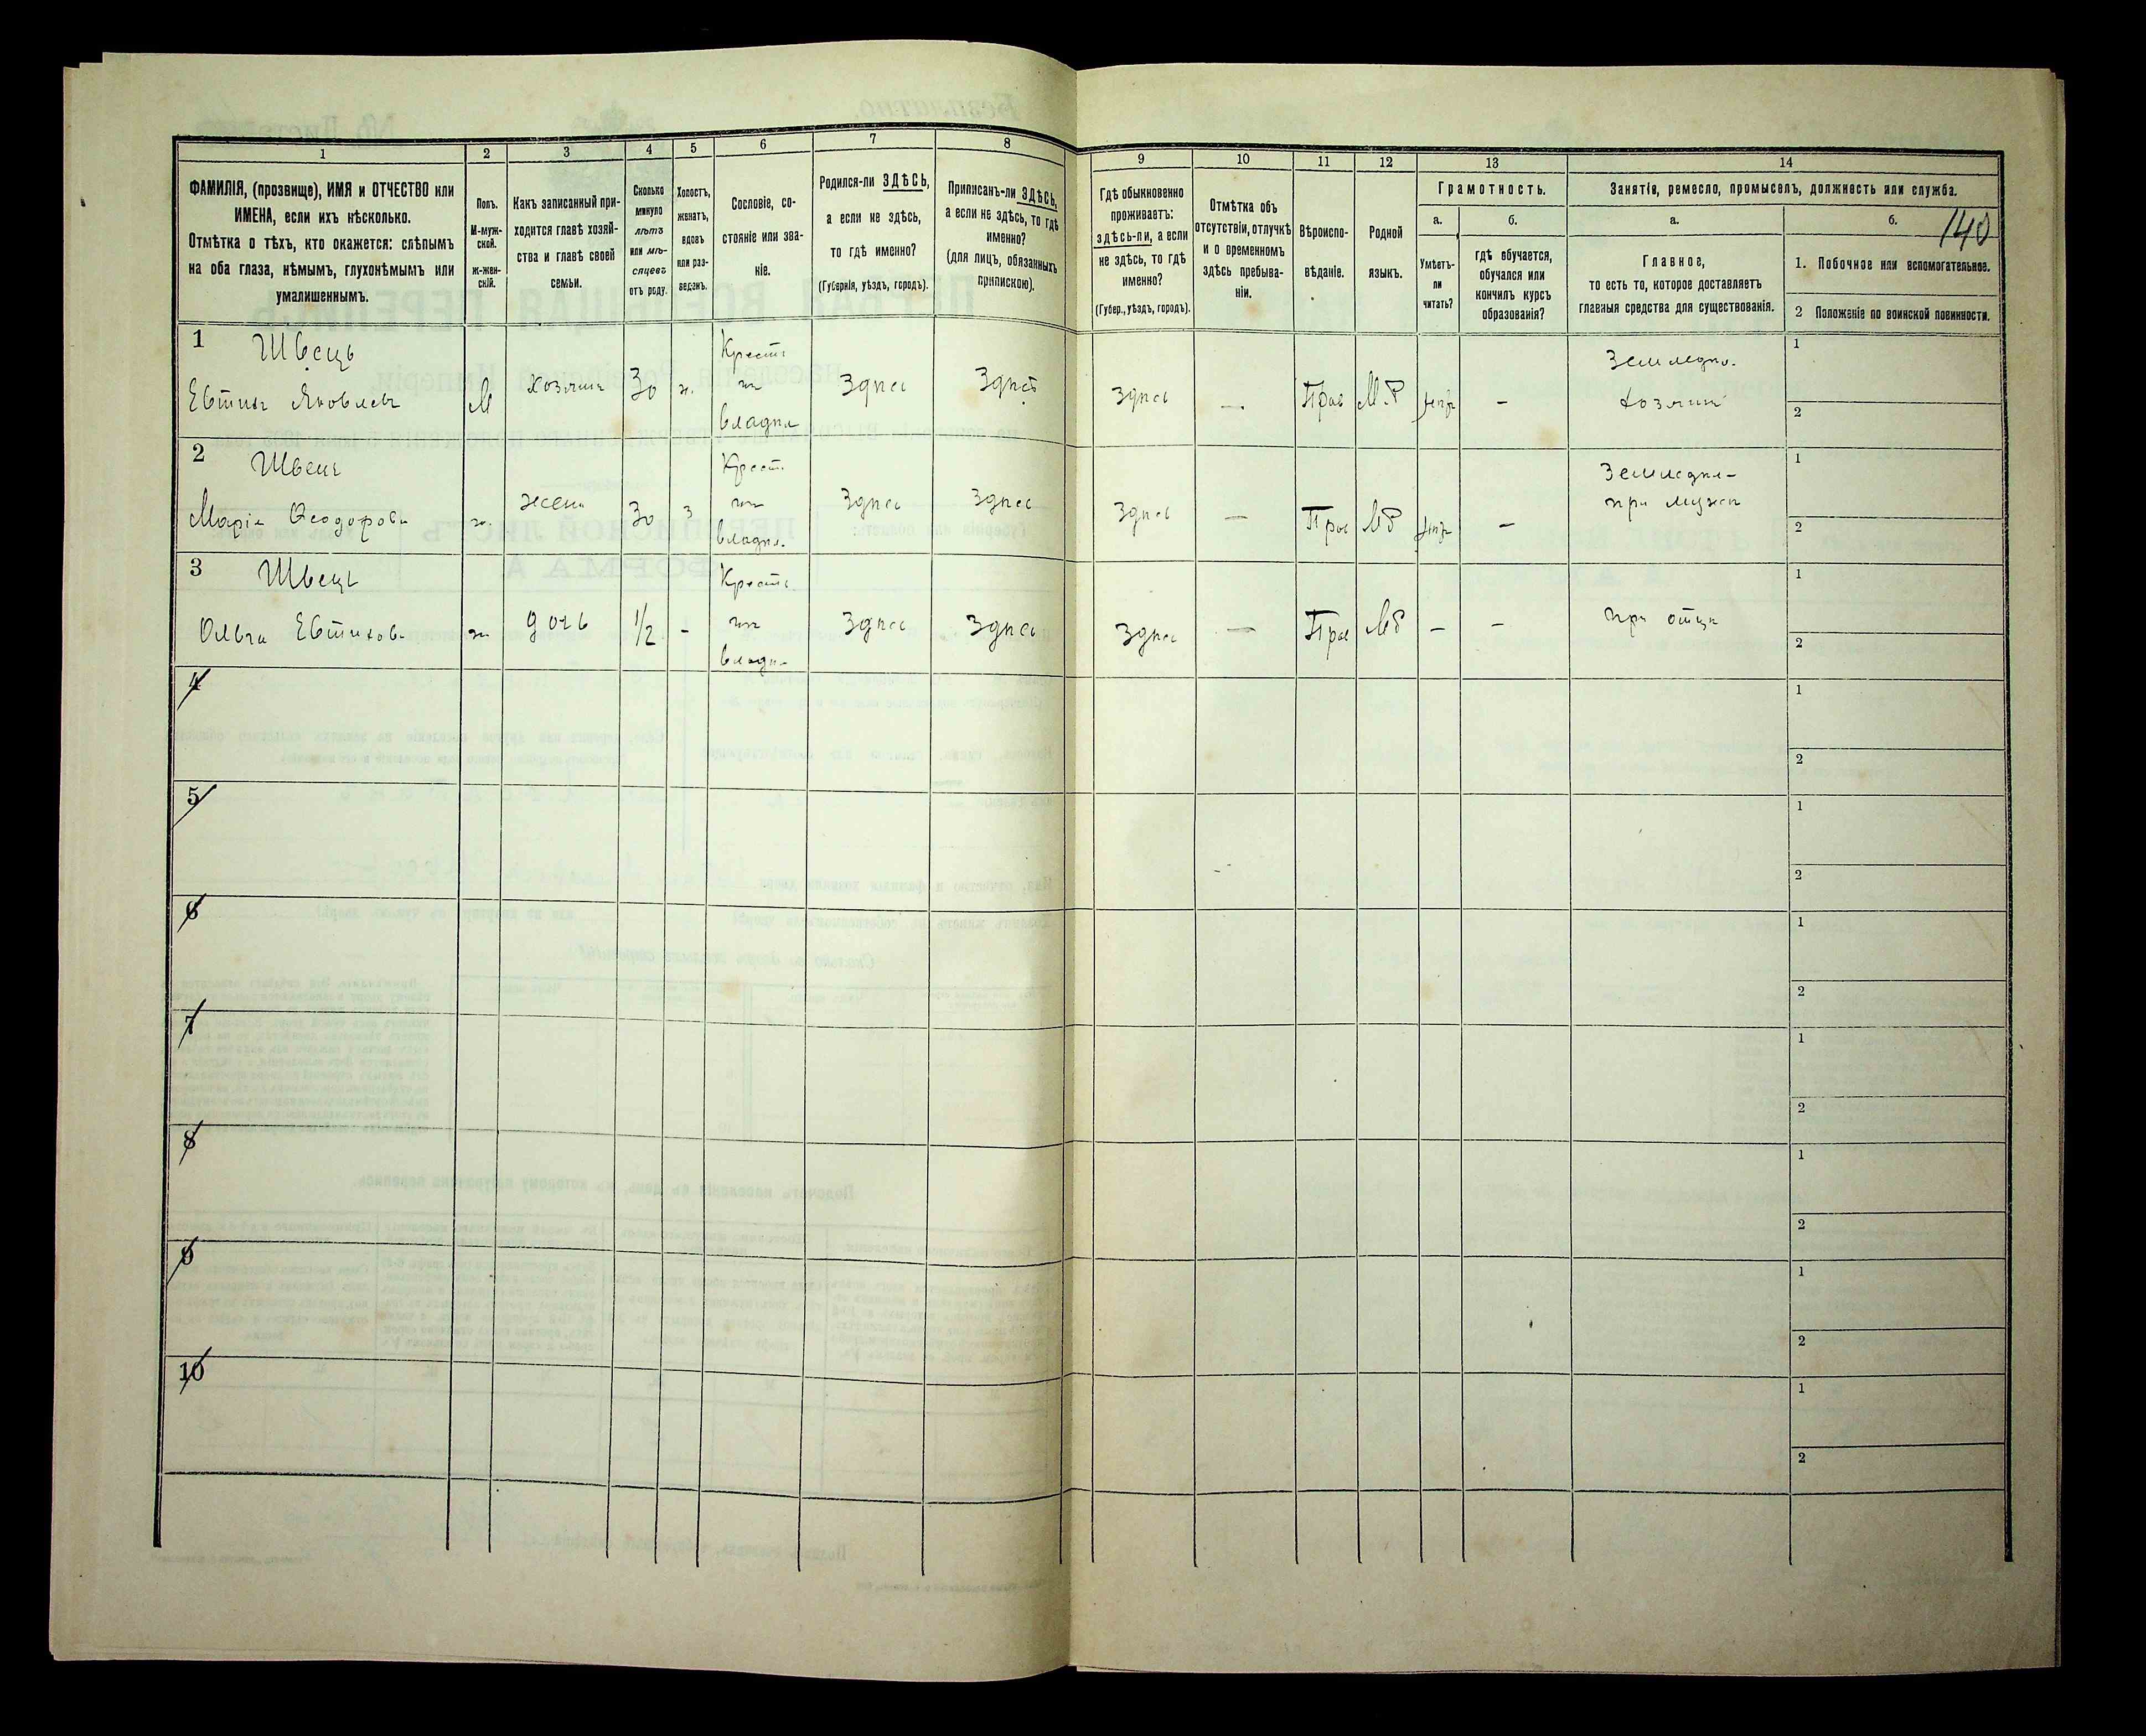 140
1
2
3
4
5
6
7
8
9
10
11
12
13
14
ФАМИЛІЯ, (прозвище), ИМЯ и ОТЧЕСТВО или
ИМЕНА, если ихъ нѣсколько.
Отмѣтка о тѣхъ, кто окажется: слѣпымъ
на оба глаза, нѣмымъ, глухонѣмымъ или
умалишеннымъ.
Полъ.
М-муж-
ской.
ж-жен-
скій.
Какъ записанный при-
ходится главѣ хозяй-
ства и главѣ своей
семьи.
Сколько
минуло
лѣтъ
или мѣ-
сяцевъ
отъ роду.
Холостъ,
женатъ,
вдовъ
или раз-
веденъ.
Сословіе, со-
стояніе или зва-
ніе.
Родился-ли ЗДѢСЬ,
а если не здѣсь,
то гдѣ именно?
(Губернія, уѣздъ, городъ).
Приписанъ-ли ЗДѢСЬ,
а если не здѣсь, то гдѣ
именно?
(для лицъ, обязанныхъ
припискою).
Гдѣ обыкновенно
проживаетъ:
здѣсь-ли, а если
не здѣсь, то гдѣ
именно?
(Губер., уѣздъ, городъ).
Отмѣтка объ
отсутствіи, отлучкѣ
и о временномъ
здѣсь пребыва-
ніи.
Вѣроиспо-
вѣданіе.
Родной
языкъ.
Грамотность.
а.
Умѣетъ-
ли
читать?
б.
гдѣ обучается,
обучался или
кончилъ курсъ
образованія?
Занятіе, ремесло, промыселъ, должность или служба.
а.
Главное,
то есть то, которое доставляетъ
главныя средства для существованія.
б.
1. Побочное или вспомогательное.
2 Положеніе по воинской повинности.
1 Швець
Евтихъ Яковлевъ
М
хозяинъ
30
ж.
Крестъ
владѣл
Здѣсь
Здѣсь
Здѣсь
—
Прав
Мр
нѣтъ
–
Земледѣл.
хозяинъ
1
2
2 Швець
Марія Ѳеодорова
ж.
жена
30
з
Крест.
владѣл.
Здѣсь
Здѣсь
Здѣсь
—
Прав
Мр
нѣтъ
–
Земледѣл-
при мужѣ
1
2
3 Швець
Ольга Евтихова
ж
дочь
1/2
-
Крестъ.
владѣл-
Здѣсь
Здѣсь
Здѣсь
—
Прав
Мр
–
–
при отцѣ
1
2
4
1
2
5
1
2
6
1
2
7
1
2
8
1
2
9
1
2
10
1
2